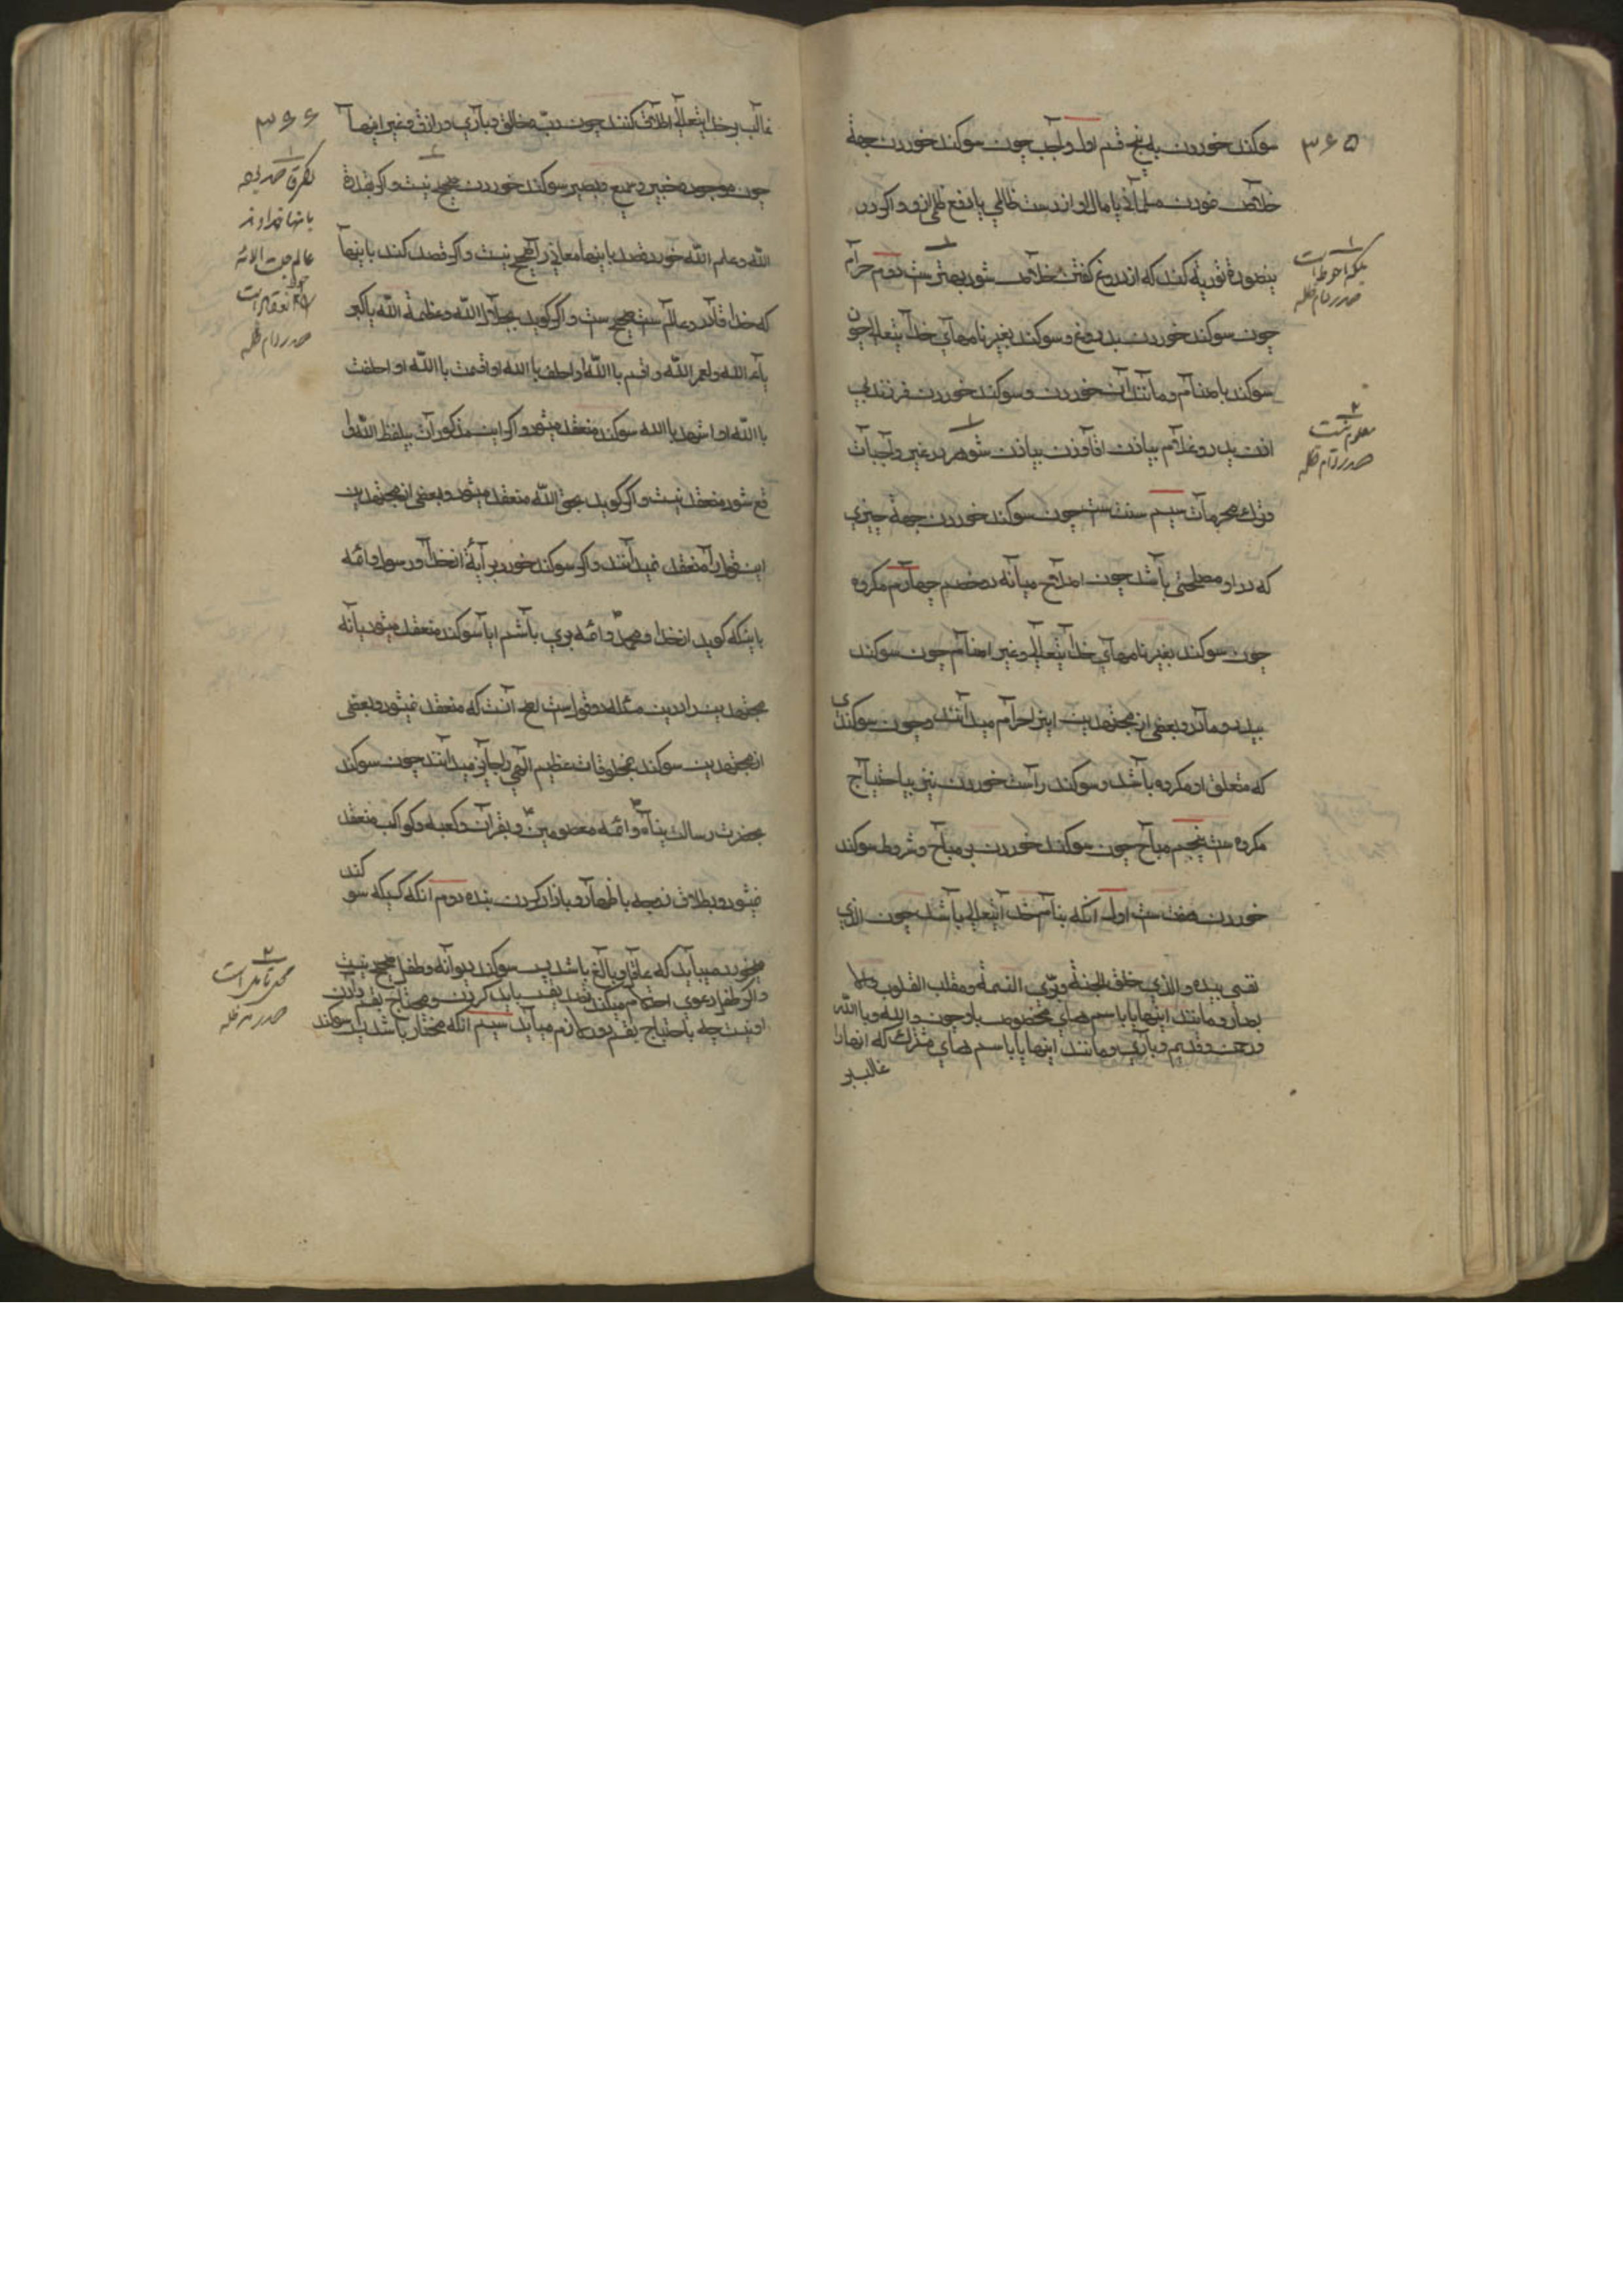 ۳۶۵
سوکند خوردن به پنج قسم اول واجب چون سوکند خوردن جهة
خلاص خودن مسلمانی یا مال او از دست ظالمی یا دفع ظلم ازو و اکر در
ینصورة توریه کند که از دروغ کفتن خلاص شود بهتر ست دویم حرام
چون سوکند خوردن بدروغ و سوکند بغیر نامهای خدایتعالی چون
سوکند باصنام و مانند آن خوردن و سوکند خوردن فرزند بی
اذن پدر و غلام بیاذن اقا و زن بیاذن شوهر در غیر واجبات
وترک محرمات سیم سنت ست چون سوکند خوردن جهة چیزی
که در او مصلحتی باشد چون اصلاح میانه دو خصم چهارم مکروه
چون سوکند بغیر نامهای خدایتعالی و غیر اصنام چون سوکند
بپدر و مادر و بعضی از مجتهدین اینرا حرام میدانند و چون سوکندی
که متعلق او مکروه باشد و سوکند راست خوردن نیز بیاحتیاج
مکروه ست پنجم مباح چون سوکند خوردن بر مباح و شروط سوکند
خوردن هفت ست اول آنکه بنام خدایتعالی باشد چون الذی
نفسی بیده والذی خلق الجنة وبرّی النسمة ومقلب القلوب والا
بصار و مانند اینها یا باسم های مخصوص باو چون والله وبا الله
ورحمن وقدیم وباری و مانند اینها یا باسم های مشترک که انها را
غالب بر
بلکه احوط است
صدر دام ظله
معلوم نیست
صدر دام ظله
۳۶۶
غالب بر خدایتعالی اطلاق کنند چون ربّ و خالق و باری و رازق و غیر اینها
چون موجود و خبیر و سمیع و بصیر سوکند خوردن صحیح نیست و اکر بقدرة
الله و علم الله خورد و قصد باینها معانی را صحیح نیست و اکر قصد کند باینها
که خدا قادر و عالم ست صحیح ست و اکر کوید بجلال الله و عظمة الله یا کبر
یاء الله و لعمر الله و اقسم با الله او احلف با الله او اقسمت با الله او احلفت
با الله او اشهد با الله سوکند منعقد میشود و اکر این مذکورات بیلفظ الله وا
قع شود منعقد نیست و اکر کوید بحق الله منعقد میشود و بعضی از مجتهدین
این قول را منعقد نمیدانند و اکر سوکند خورد ببرآیة از خدا و رسول و ائمه
باینکه کوید از خدا و محمد و ائمه بری باشم ایا سوکند منعقد میشود یا نه
مجتهدین را درین مسئله دو قول است اصح آنست که منعقد نمیشود و بعضی
از مجتهدین سوکند بمخلوقات عظیم الهی را جایز میدانند چون سوکند
بحضرت رسالت پناه و ائمه معصومین و بقرآن و کعبه و کواکب منعقد
نمیشود و بطلاق زوجه یا ظهار و یا آزاد کردن بنده دویم انکه کسیکه سو کند
میخورد میباید که عاقل و بالغ باشد پس سوکند دیوانه و طفل صحیح نیست
واکر طفل دعوی احتلام میکند تصدیقش باید کردن و محتاج بقسم دادن
او نیست چه باحتیاج بقسم دور لازم میآید سیم انکه مختار باشد پس سوکند
باینها خداوند
صدر دام ظله
محل تأمل است
صدر دام ظله